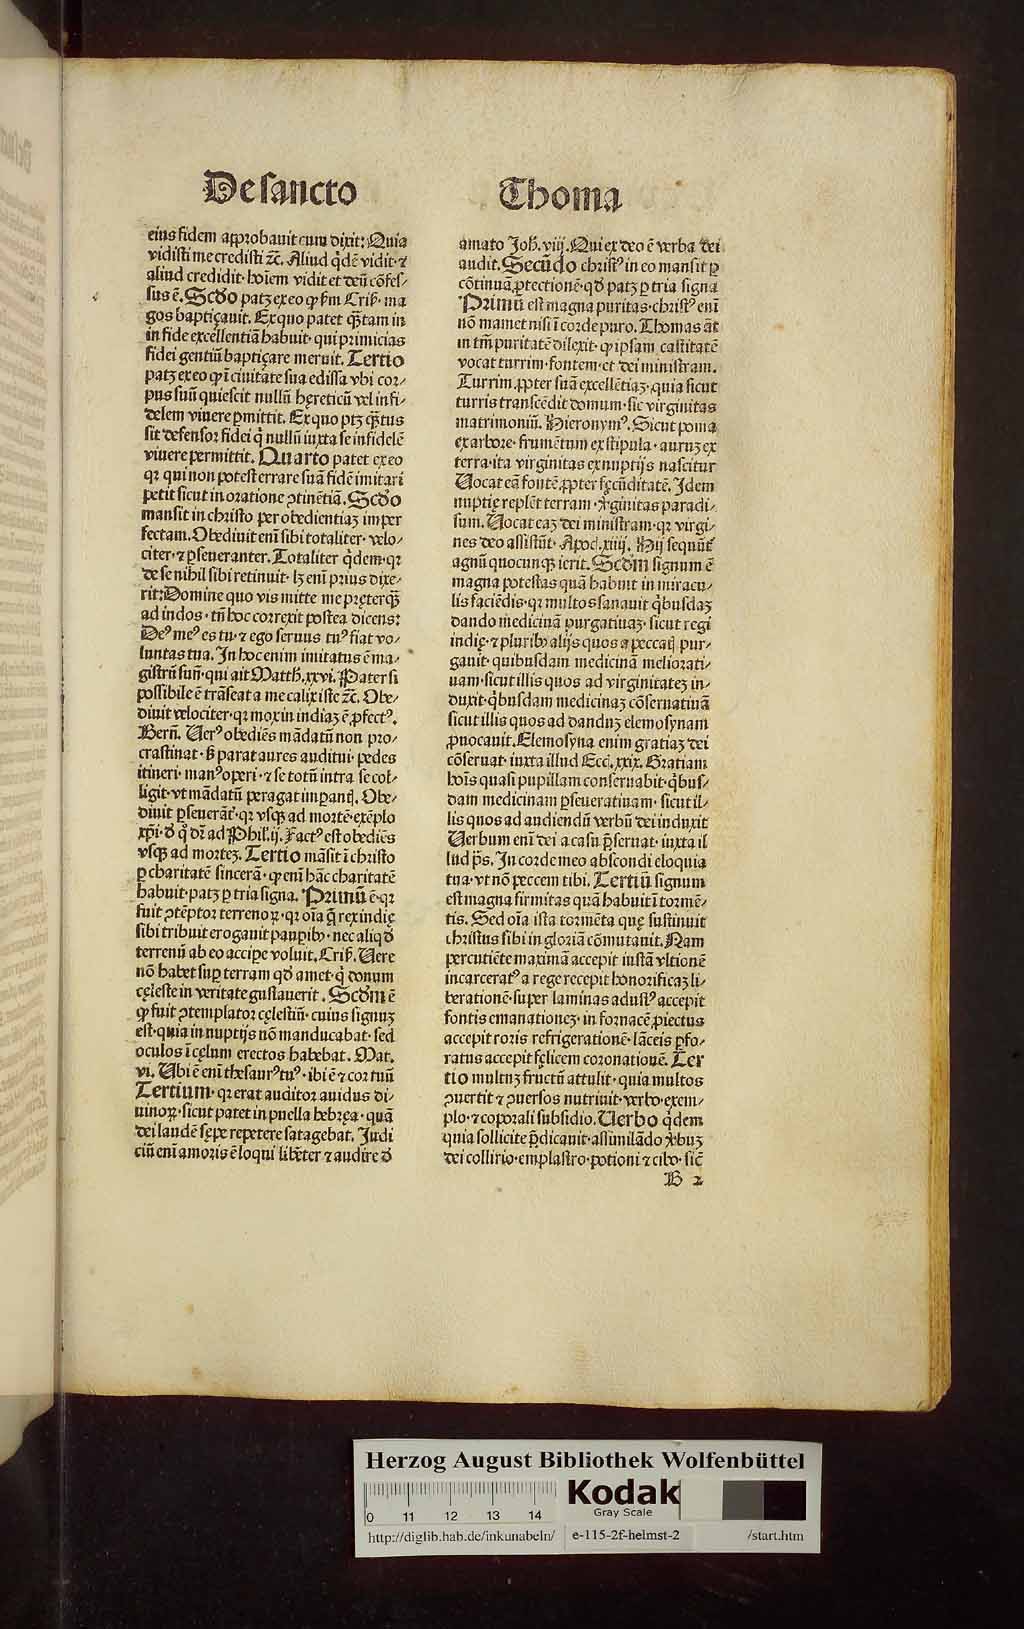 De sancto Thoma
eius fidem approbauit cum dixit: Quia
vidisti me credisti ⁊c̄. Aliud q̇dē vidit· ⁊
aliud credidit· hoīem vidit et deū cōfes⸗
sus ē. Scd̓o patꝫ ex eo ꝙ ẜm Criß· ma
gos baptiçauit. Ex quo patet qȝ̄tam in
in fide excellentiā habuit· qui primicias
fidei gentiū baptiçare meruit. Tertio
patꝫ ex eo ꝙ ī ciuitate sua edissa vbi cor⸗
pus suū quiescit nullū hęreticū vel infi⸗
delem viuere ꝑmittit. Ex quo ptꝫ qȝ̄tus
sit defensor fidei q̇ nullū iuxta se infidelē
viuere permittit. Quarto patet ex eo
qꝛ qui non potest errare suā fidē imitari
petit sicut in oratione ꝯtinētiā. Scd̓o
mansit in christo per obedientiaꝫ imper
fectam. Obediuit enī sibi totaliter· velo⸗
citer· ⁊ ꝑseueranter. Totaliter q̇dem· qꝛ
de se nihil sibi retinuit· lꝫ enī prius dixe⸗
rit: Domine quo vis mitte me pręterqȝ̄
ad indos· tn̄ hoc correxit postea dicens:
Deꝰ meꝰ es tu· ⁊ ego seruus tuꝰ fiat vo⸗
luntas tua. In hoc enim imitatus ē ma⸗
gistrū suū· qui ait Matth̄. xxvi. Pater si
possibile ē trāseat a me calix iste ⁊c̄. Obe⸗
diuit velociter· qꝛ mox in indiaꝫ ē ꝓfectꝰ.
Bern̄. Uerꝰ obediēs mādatū non pro⸗
crastinat· sꝫ parat aures auditui· pedes
itineri· manꝰ operi· ⁊ se totū intra se col⸗
ligit· vt mādatū peragat imperanti. Obe⸗
diuit ꝑseuerāt̓· qꝛ vsqȝ ad mortē· exēplo
xp̄i· d̓ q̊ dr̄ ad Phil̓. ij. Factꝰ est obediēs
vsqȝ ad morteꝫ. Tertio māsit ī christo
ꝑ charitatē sincerā· ꝙ enī hāc charitatē
habuit· patꝫ ꝑ tria signa. Primū ē· qꝛ
fuit ꝯtēptor terrenoꝝ· qꝛ oīa q̄ rex indię
sibi tribuit erogauit paupibꝰ· nec aliqd̓
terrenū ab eo accipe voluit. Criß. Uere
nō habet suꝑ terram qd̓ amet· q̇ donum
cęleste in veritate gustauerit. Scd̓m ē
ꝙ fuit ꝯtemplator cęlestiū· cuius signuꝫ
est· quia in nuptijs nō manducabat· sed
oculos ī cęlum erectos habebat. Mat.
vi. Ubi ē enī thesaurꝰ tuꝰ· ibi ē ⁊ cor tuū
Tertium· qꝛ erat auditor auidus di⸗
uinoꝝ· sicut patet in puella hebręa· quā
dei laudē sępe repetere satagebat. Judi
ciū enī amoris ē loqui libēter ⁊ audire d̓
amato Joh̄. viij. Qui ex deo ē verba dei
audit. Secūdo christꝰ in eo mansit ꝑ
cōtinuā ꝓtectionē· qd̓ patꝫ ꝑ tria signa
Primū est magna puritas· christꝰ enī
nō manet nisi ī corde puro. Thomas āt
in tm̄ puritatē dilexit· ꝙ ipsam castitatē
vocat turrim· fontem· et dei ministram.
Turrim ꝓpter suā excellētiaꝫ· quia sicut
turris transcēdit domum· sic virginitas
matrimoniū. Hieronymꝰ. Sicut poma
ex arbore· frumētum ex stipula· auruꝫ ex
terra· ita virginitas ex nuptijs nascitur
Uocat eā fontē ꝓpter fęcūditatē. Idem
nuptię replēt terram· v̓ginitas paradi⸗
sum. Uocat eaꝫ dei ministram· qꝛ virgi⸗
nes deo assistūt· Apoc̓. xiiij. Hij sequūt̓
agnū quocunqȝ ierit. Scd̓m signum ē
magna potestas quā habuit in miracu⸗
lis faciēdis· qꝛ multos sanauit q̇busdaꝫ
dando medicinā purgatiuaꝫ· sicut regi
indię· ⁊ pluribꝰ alijs quos a peccatꝭ pur⸗
gauit· quibusdam medicinā meliorati⸗
uam· sicut illis quos ad virginitateꝫ in⸗
duxit· q̇busdam medicinaꝫ cōseruatiuā
sicut illis quos ad danduꝫ elemosynam
ꝓuocauit. Elemosyna enim gratiaꝫ dei
cōseruat· iuxta illud Ecc̓l. xxix. Gratiam
hoīs quasi pupillam conseruabit· q̇bus⸗
dam medicinam ꝑseueratiuam· sicut il⸗
lis quos ad audiendū verbū dei induxit
Uerbum enī dei a casu p̄seruat· iuxta il
lud ps̄. In corde meo abscondi eloquia
tua· vt nō peccem tibi. Tertiū signum
est magna firmitas quā habuit ī tormē⸗
tis. Sed oīa ista tormēta quę sustinuit
christus sibi in gloriā cōmutauit. Nam
percutiēte maximā accepit iustā vltionē
incarceratꝰ a rege recepit honorificaꝫ li⸗
berationē· super laminas adustꝰ accepit
fontis emanationeꝫ· in fornacē ꝓiectus
accepit roris refrigerationē· lāceis ꝑfo⸗
ratus accepit fęlicem coronationē. Ter
tio multuꝫ fructū attulit· quia multos
ꝯuertit ⁊ ꝯuersos nutriuit· verbo· exem⸗
plo· ⁊ corporali subsidio. Uerbo q̇dem
quia sollicite p̄dicauit· assimilādo v̓buꝫ
dei collirio· emplastro· potioni ⁊ cibo· sic̄
B 2
Herzog August Bibliothek Wolfenbüttel
0 11 12 13 14
Kodak
Gray Scale
http://diglib.hab.de/inkunabeln/ e-115-2f-helmst-2 /start.htm